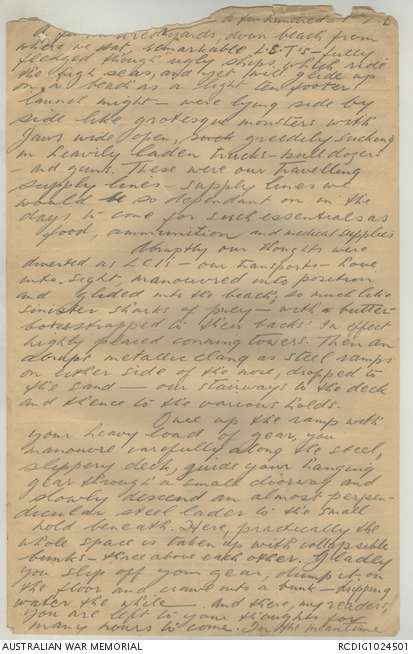 a few hundred
yards, down beach, from
where we sat, remarkable L.S.T's - fully
fledged though ugly ships, which ride
the high seas, and yet will glide up
on a beach as a slight ten footer
launch might - were lying side by
side like grotesque monsters with
Jaws wide open, such greedily sucking
in heavily laden trucks - bulldozers
- and guns. These were our travelling
supply lines - supply lines we
would be so dependant on in the
days to come for such essentials as
food, ammunition and medical supplies
Abruptly our thoughts were
diverted as L.C.I's - our transports - hove
into sight, manouvred into position
and glided into the beach, so much like
sinister sharks of prey - with a butter-
box strapped to their backs in effect
highly placed conning towers. Then an
abrupt metallic clang as steel ramps
on either side of the nose, dropped to
the sand - our stairways to the deck
and thence to the various holds.
Once up the ramp with
your heavy load of gear, you
manouvre carefully along the steel,
slippery deck, guide your hanging
gear through a small doorway and
slowly descend an almost perpen-
dicular steel lader to the small
hold beneath. Here, practically the
whole space is taken up with collapsible
bunks - three above each other. Gladly
you slip off your gear, dump it on
the floor and crawl into a bunk - dripping
water the while -. And there, my readers,
you are left to your thoughts for
many hours to come. In the meantime
AUSTRALIAN WAR MEMORIAL
RCDIG1024501